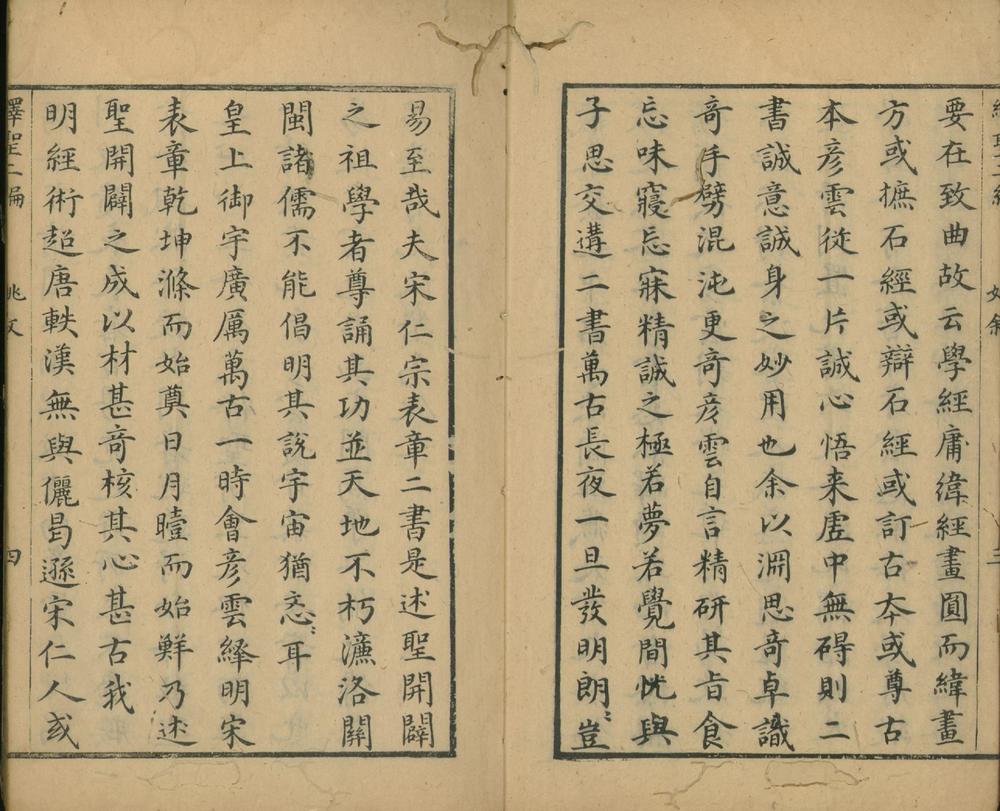 要在致曲故云學經庸緯經畫圓而緯畫
方或摭石經或辯石經或訂古本或尊古
本彦雲從一片誠心悟来虗中無碍則二
書誠意誠身之妙用也余以淵思竒卓識
竒手劈混沌更竒彦雲自言精研其㫖食
忘味寢忘寐精誠之極若夢若覺間恍與
子思交遘二書萬古長夜一旦發明朗〻豈
易至哉夫宋仁宗表章二書是述聖開闢
之祖學者尊誦其功並天地不朽濂洛關
閩諸儒不能倡明其說宇宙猶忞〻耳
皇上御宇廣厲萬古一時會彦雲繹明宋
表章乾坤滌而始奠日月曀而始鮮乃述
聖開闢之成以材甚竒核其心甚古我
明經術超唐軼漢無與儷曷遜宋仁人或
繹聖二編
姚文
四